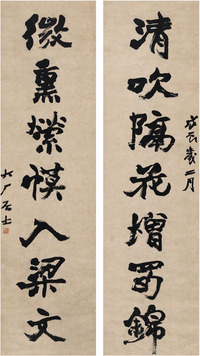 清吹隔花增蜀錦
戊辰歲二月
微熏縈幙入梁文
大厂居士